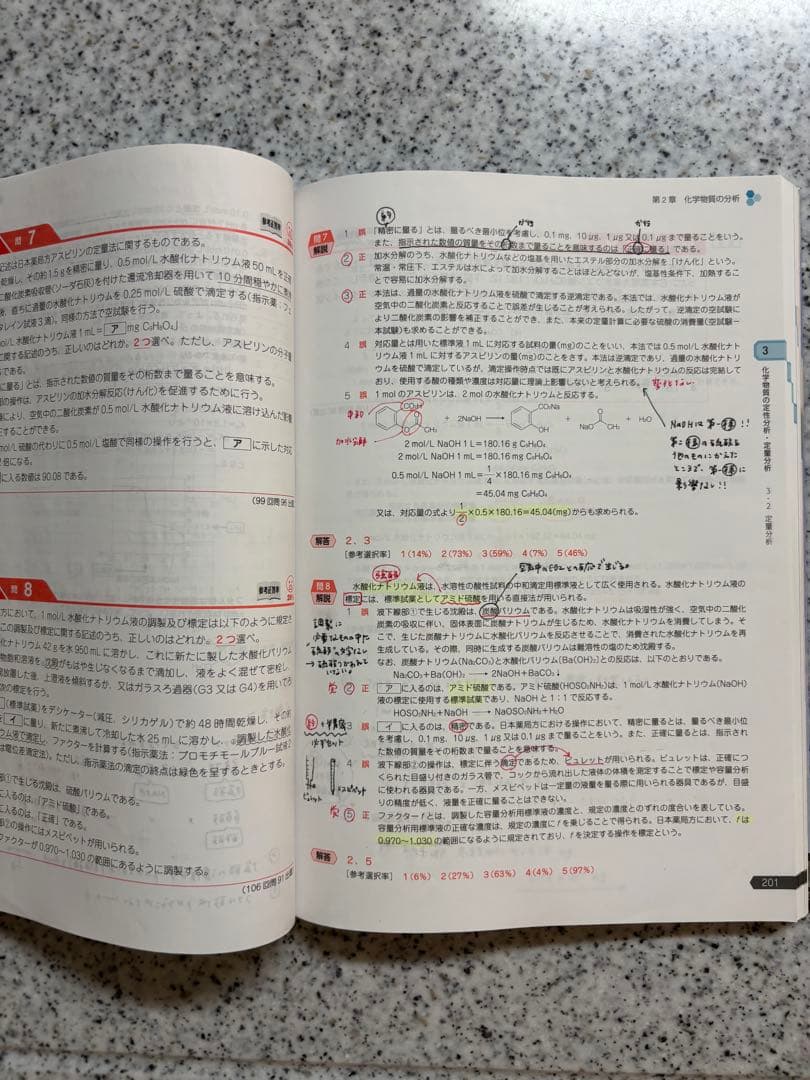 問 7
記述は日本薬局方アスピリンの定量法に関するものである。
乾燥し、その約1.5gを精密に量り、0.5 mol/L 水酸化ナトリウム液 50 mLを正確
二酸化炭素吸収管(ソーダ石灰)を付けた還流冷却器を用いて10分間穏やかに
後、直ちに過量の水酸化ナトリウムを0.25 mol/L 硫酸で滴定する(指示薬:フェ
タレイン試液3滴)。同様の方法で空試験を行う。
mol/L 水酸化ナトリウム液1 mL= ア mg C₉H₈O₄
に関する記述のうち、正しいのはどれか。2つ選べ。ただし、アスピリンの分子量
に量る」とは、指示された数値の質量をその桁数まで量ることを意味する。
の操作は、アスピリンの加水分解反応(けん化)を促進するために行う。
により、空気中の二酸化炭素が0.5 mol/L 水酸化ナトリウム液に溶け込んだ影響
正することができる。
mol/L 硫酸の代わりに0.5 mol/L 塩酸で同様の操作を行うと、 ア に示した対応
2倍になる。
に入る数値は90.08である。
(99回問96
問 8
方において、1 mol/L 水酸化ナトリウム液の調製及び標定は以下のように規定さ
この調製及び標定に関する記述のうち、正しいのはどれか。2つ選べ。
ナトリウム42 gを水950 mLに溶かし、これに新たに製した水酸化バリウム
物飽和溶液を、沈殿がもはや生じなくなるまで滴加し、液をよく混ぜて密栓し、
放置した後、上澄液を傾斜するか、又はガスろ過器(G3又はG4)を用いてろ
次の標定を行う。
(標準試薬)をデシケーター(減圧、シリカゲル)で約48時間乾燥し、その約
イ に量り、新たに煮沸して冷却した水25 mLに溶かし、②調製した水酸化
ウム液で滴定し、ファクターを計算する(指示薬法:プロモチモールブルー試液2
は電位差滴定法)。ただし、指示薬法の滴定の終点は緑色を呈するときとする。
①で生じる沈殿は、硫酸バリウムである。
に入るのは、「アミド硫酸」である。
に入るのは、「正確」である。
②の操作にはメスピペットが用いられる。
ファクターが0.970~1.030の範囲にあるように調製する。
(106回問91
第2章 化学物質の分析
問7
解説
1 誤 「精密に量る」とは、量るべき最小位を考慮し、0.1 mg、10 μg、1 μg又は0.1 μgまで量ることをいう。
また、指示された数値の質量をその桁数まで量ることを意味するのは「正確に量る」である。
2 正 加水分解のうち、水酸化ナトリウムなどの塩基を用いたエステル部分の加水分解を「けん化」という。
常温・常圧下、エステルは水によって加水分解することはほとんどないが、塩基性条件下、加熱するこ
とで容易に加水分解する。
3 正 本法は、過量の水酸化ナトリウム液を硫酸で滴定する逆滴定である。本法では、水酸化ナトリウム液が
空気中の二酸化炭素と反応することで誤差が生じることが考えられる。したがって、逆滴定の空試験に
より二酸化炭素の影響を補正することができ、また、本来の定量計算に必要な硫酸の消費量(空試験-
本試験)も求めることができる。
4 誤 対応量とは用いた標準液1 mLに対応する試料の量(mg)のことをいい、本法では0.5 mol/L水酸化ナト
リウム液1 mLに対するアスピリンの量(mg)のことをさす。本法は逆滴定であり、過量の水酸化ナトリ
ウムを硫酸で滴定しているが、滴定操作時点では既にアスピリンと水酸化ナトリウムの反応は完結して
おり、使用する酸の種類や濃度は対応量に理論上影響しないと考えられる。
変化しない
5 誤 1 molのアスピリンは、2 molの水酸化ナトリウムと反応する。
中和
加水分解
CO₂H + 2NaOH → CO₂Na OH + NaO CH₃ + H₂O
2 mol/L NaOH 1 L=180.16 g C₉H₈O₄
2 mol/L NaOH 1 mL=180.16 mg C₉H₈O₄
0.5 mol/L NaOH 1 mL=1/4×180.16 mg C₉H₈O₄
=45.04 mg C₉H₈O₄
又は、対応量の式より1/2×0.5×180.16=45.04(mg)からも求められる。
NaOHは第一種!!
第二種の硫酸を
他のものにかえた
ところで、第一種に
影響ない!!
解答 2、3
[参考選択率] 1(14%) 2(73%) 3(59%) 4(7%) 5(46%)
問8
解説
水酸化ナトリウム液は、水溶性の酸性試料の中和滴定用標準液として広く使用される。水酸化ナトリウム液の
標定には、標準試薬としてアミド硫酸を用いる直接法が用いられる。
1 誤 下線部①で生じる沈殿は、炭酸バリウムである。水酸化ナトリウムは吸湿性が強く、空気中の二酸化
炭素の吸収に伴い、固体表面に炭酸ナトリウムが生じるため、水酸化ナトリウムを消費してしまう。そ
こで、生じた炭酸ナトリウムに水酸化バリウムを反応させることで、消費された水酸化ナトリウムを再
生している。その際、同時に生成する炭酸バリウムは難溶性の塩のため沈殿する。
なお、炭酸ナトリウム(Na₂CO₃)と水酸化バリウム[Ba(OH)₂]との反応は、以下のとおりである。
Na₂CO₃+Ba(OH)₂ → 2NaOH+BaCO₃↓
2 正 ア に入るのは、アミド硫酸である。アミド硫酸(HOSO₂NH₂)は、1 mol/L水酸化ナトリウム(NaOH)
液の標定に使用する標準試薬であり、NaOHと1:1で反応する。
HOSO₂NH₂+NaOH → NaOSO₂NH₂+H₂O
3 誤 イ に入るのは、精密である。日本薬局方における操作において、精密に量るとは、量るべき最小位
を考慮し、0.1 mg、10 μg、1 μg又は0.1 μgまで量ることをいう。また、正確に量るとは、指示され
た数値の質量をその桁数まで量ることを意味する。
4 誤 波下線部②の操作は、標定に伴う滴定であるため、ビュレットが用いられる。ビュレットは、正確につ
くられた目盛り付きのガラス管で、コックから流れ出した液体の体積を測定することで標定や容量分析
に使われる器具である。一方、メスピペットは一定量の液量を量る際に用いられる器具であるが、目盛
りの精度が低く、液量を正確に量ることはできない。
5 正 ファクターfとは、調製した容量分析用標準液の濃度と、規定の濃度とのずれの度合いを表している。
容量分析用標準液の正確な濃度は、規定の濃度にfを乗じることで得られる。日本薬局方において、fは
0.970~1.030の範囲になるように規定されており、fを決定する操作を標定という。
ビュレット
メスピペット
解答 2、5
[参考選択率] 1(6%) 2(27%) 3(63%) 4(4%) 5(97%)
3
化学物質の定性分析・定量分析
3-2 定量分析
201